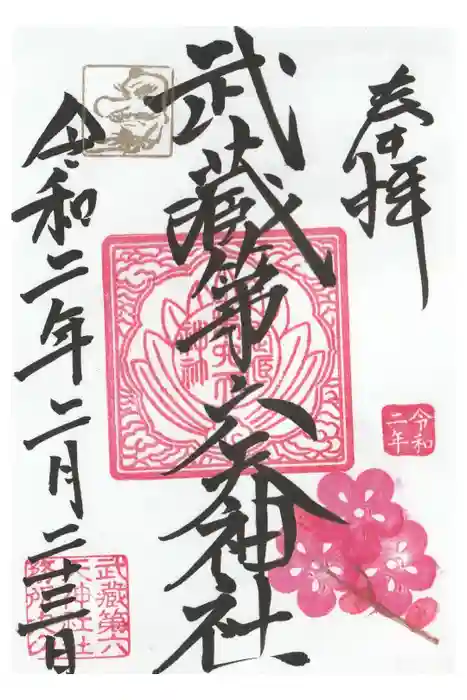 奉拝
令和
二年
武蔵第六天神社
武蔵第六
天神社
令和二年二月二十三日